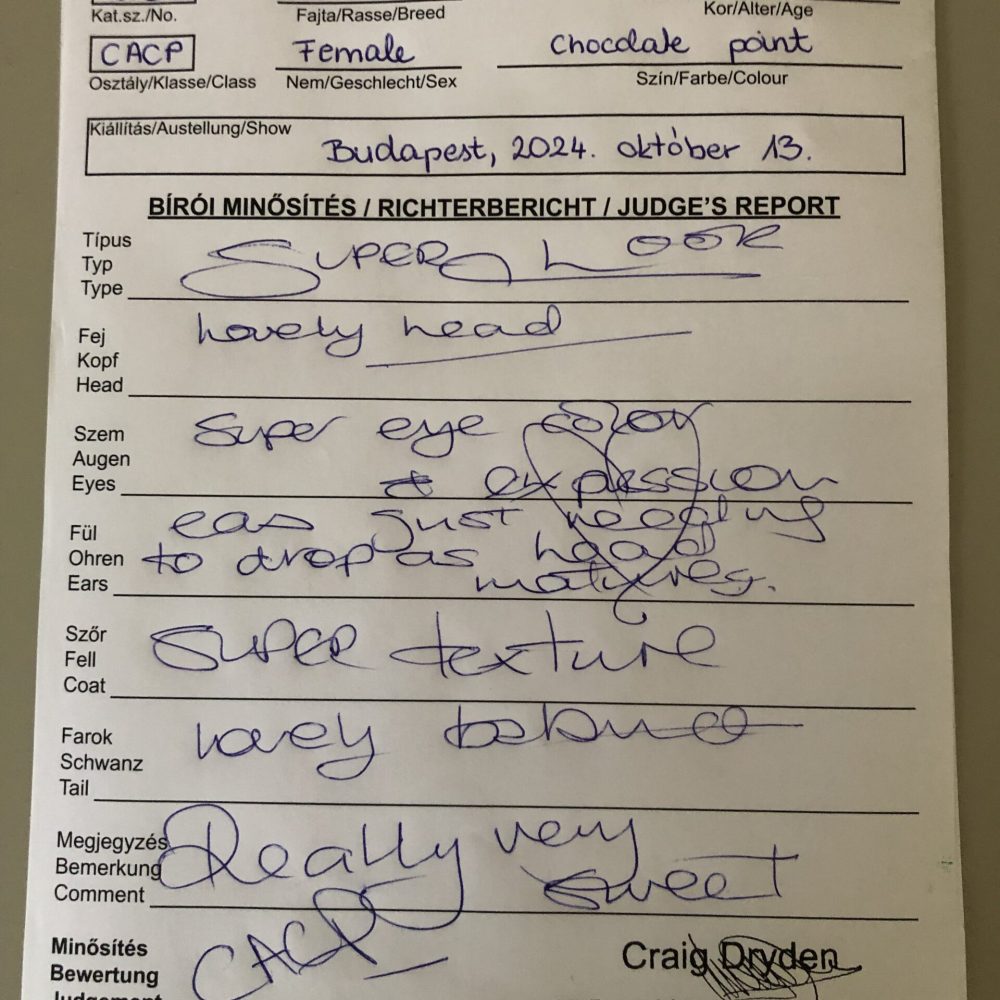 Kat.sz./No. Fajta/Rasse/Breed Kor/Alter/Age
CACP Female Chocolate point
Osztály/Klasse/Class Nem/Geschlecht/Sex Szín/Farbe/Colour
Kiállítás/Austellung/Show
Budapest, 2024. október 13.
BÍRÓI MINŐSÍTÉS / RICHTERBERICHT / JUDGE'S REPORT
Típus
Typ
Type
SUPER LOOK
Fej
Kopf
Head
Lovely head
Szem
Augen
Eyes
Super eye color
& expession
Fül
Ohren
Ears
eas just needing
to drop as head
matures.
Szőr
Fell
Coat
SUPER texture
Farok
Schwanz
Tail
Lovely balance
Megjegyzés
Bemerkung
Comment
Really very
sweet
Minősítés
Bewertung
Judgement
CACP
Craig Dryden